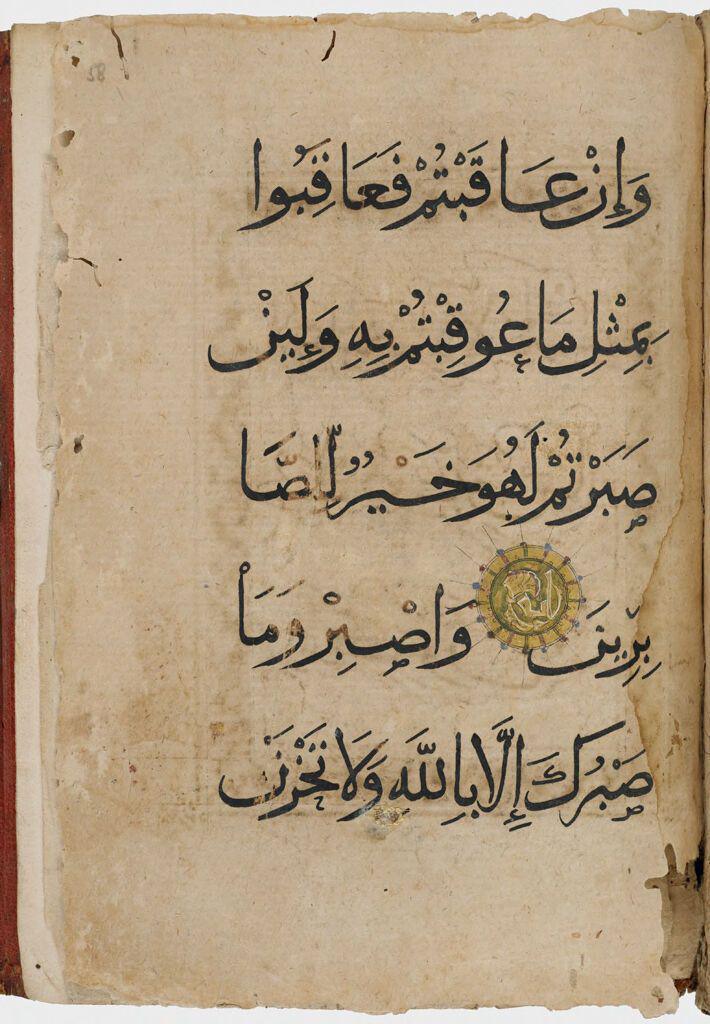 وَإِنْ عَاقَبْتُمْ فَعَاقِبُوا
بِمِثْلِ مَا عُوقِبْتُمْ بِهِ وَلَئِنْ
صَبَرْتُمْ لَهُوَ خَيْرٌ لِّلصَّا
بِرِينَ وَاصْبِرْ وَمَا
صَبْرُكَ إِلَّا بِاللَّهِ وَلَا تَحْزَنْ